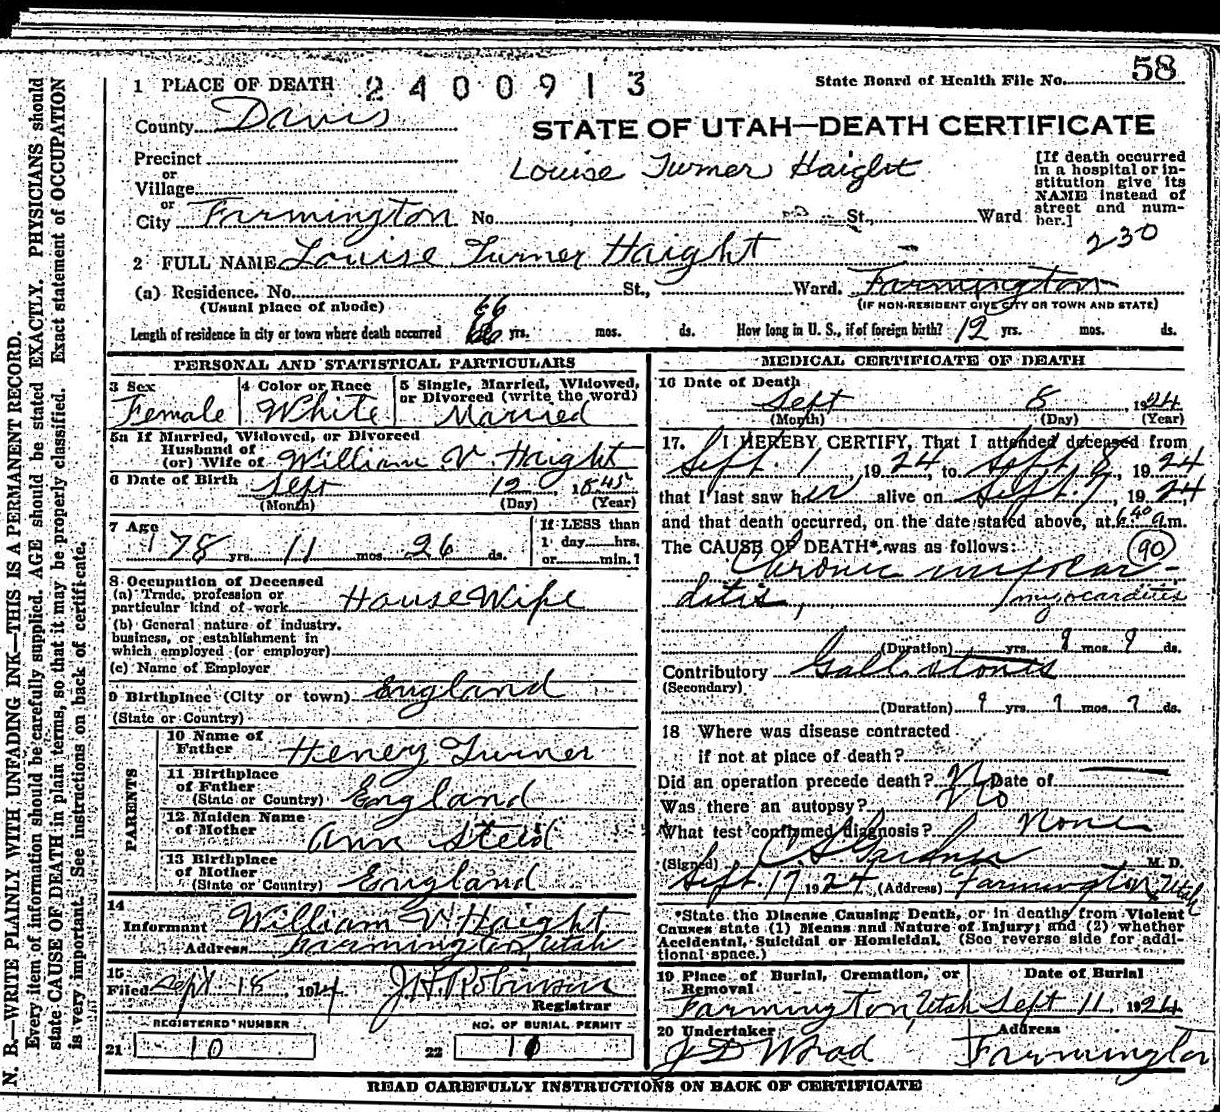 58
1 PLACE OF DEATH 2400913 State Board of Health File No.
County Davis
STATE OF UTAH—DEATH CERTIFICATE
Precinct
or
Village
or
City Farmington No. St., Ward
Louise Turner Haight
[If death occurred
in a hospital or in-
stitution give its
NAME instead of
street and num-
ber.]
230
2 FULL NAME Louise Turner Haight
(a) Residence. No. St., Ward. Farmington
(Usual place of abode) (IF NON-RESIDENT GIVE CITY OR TOWN AND STATE)
66
Length of residence in city or town where death occurred 66 yrs. mos. ds. How long in U. S., if of foreign birth? 12 yrs. mos. ds.
PERSONAL AND STATISTICAL PARTICULARS
3 Sex
Female
4 Color or Race
White
5 Single, Married, Widowed,
or Divorced (write the word)
Married
5a If Married, Widowed, or Divorced
Husband of
(or) Wife of William V. Haight
6 Date of Birth Sept 12 1845
(Month) (Day) (Year)
7 Age
78 yrs. 11 mos. 26 ds.
If LESS than
1 day......hrs.
or......min.?
8 Occupation of Deceased
(a) Trade, profession or
particular kind of work HouseWife
(b) General nature of industry,
business, or establishment in
which employed (or employer)
(c) Name of Employer
9 Birthplace (City or town) England
(State or Country)
PARENTS
10 Name of
Father Henery Turner
11 Birthplace
of Father
(State or Country) England
12 Maiden Name
of Mother Ann Steid
13 Birthplace
of Mother
(State or Country) England
14
Informant William V. Haight
Address Farmington, Utah
15
Filed Sept 18, 1924 J. H. Robinson
Registrar
REGISTERED NUMBER
21 10
NO. OF BURIAL PERMIT
22 10
MEDICAL CERTIFICATE OF DEATH
16 Date of Death
Sept 8 1924
(Month) (Day) (Year)
17. I HEREBY CERTIFY, That I attended deceased from
Sept. 1, 1924, to Sept. 8, 1924
that I last saw her alive on Sept. 7, 1924
and that death occurred, on the date stated above, at 6:40 a.m.
The CAUSE OF DEATH* was as follows: 90
Chronic miyocar-
ditis, myocarditis
(Duration) yrs. ? mos. ? ds.
Contributory Gall stones
(Secondary)
(Duration) ? yrs. ? mos. ? ds.
18 Where was disease contracted
if not at place of death?
Did an operation precede death? No Date of
Was there an autopsy? No
What test confirmed diagnosis? None
(Signed) C S Gardner M. D.
Sept 17 1924 (Address) Farmington, Utah
*State the Disease Causing Death, or in deaths from Violent
Causes state (1) Means and Nature of Injury; and (2) whether
Accidental, Suicidal or Homicidal. (See reverse side for addi-
tional space.)
19 Place of Burial, Cremation, or
Removal
Farmington, Utah
Date of Burial
Sept 11 1924
20 Undertaker
J D Wood
Address
Farmington
READ CAREFULLY INSTRUCTIONS ON BACK OF CERTIFICATE
N. B.—WRITE PLAINLY WITH UNFADING INK—THIS IS A PERMANENT RECORD.
Every item of information should be carefully supplied. AGE should be stated EXACTLY. PHYSICIANS should
state CAUSE OF DEATH in plain terms, so that it may be properly classified. Exact statement of OCCUPATION
is very important. See instructions on back of certificate.